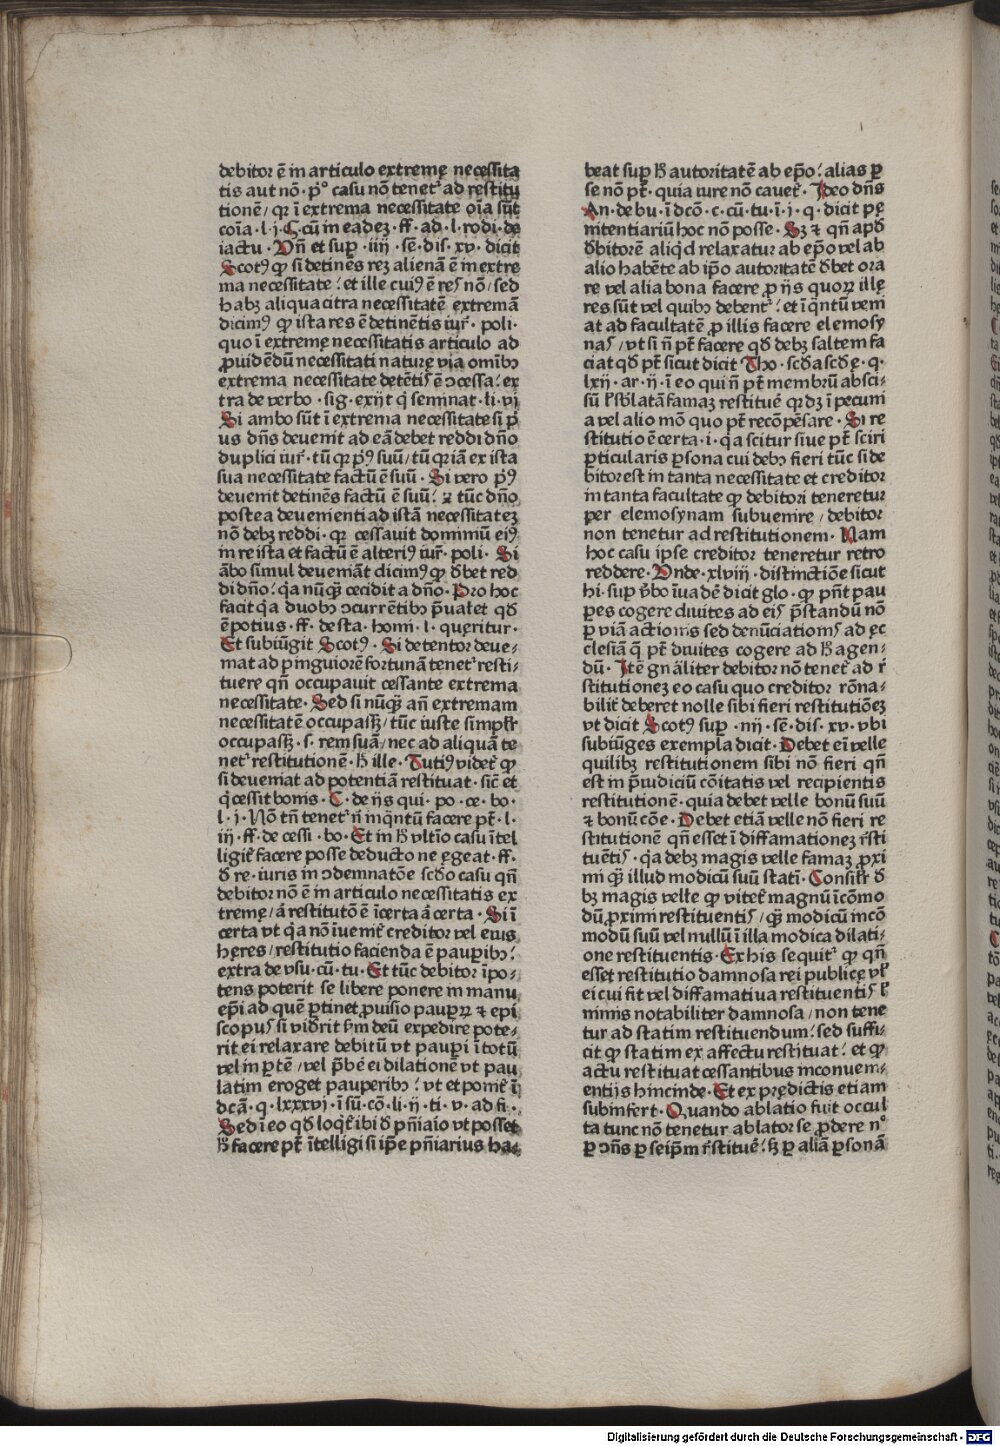 debitor ē in articulo extremę necessita
tis aut nō · pº casu nō tenetʳ ad restitu
tionē / qꝛ ī extrema necessitate oīa sūt
coīa · l · j · C · cū in eadeʒ · ff · ad · l · rodi · de
iactu · Vn̄ et sup̱ · iiij · sē · dis · xv · dicit
Scotꝰ ꝙ si detinēs reʒ alienā ē in extre
ma necessitate : et ille cuiꝰ ē res nō / sed
habʒ aliqua citra necessitatē extremā
dicimꝰ ꝙ ista res ē detinētis iurˀ · poli ·
quo ī extremę necessitatis articulo ad
ꝓuidēdū necessitati naturę via omībꝰ
extrema necessitate detētis ē ↄcessa : ex
tra de verbo · sig · exijt q̇ seminat · li · vj
Si ambo sūt ī extrema necessitate si p̄
us dn̄s deuenit ad eā debet reddi dn̄o
duplici iurˀ · tū qꝛ pꝰ suū / tū qꝛ iā ex ista
sua necessitate factū ē suū · Si vero pꝰ
deuenit detinēs factū ē suū : ⁊ tūc dn̄o
postea deuenienti ad istā necessitateʒ
nō debʒ reddi · qꝛ cessauit dominiū eiꝰ
in re ista et factū ē alteriꝰ iurˀ · poli · Si
ābo simul deueniāt dicimꝰ ꝙ d̄bet red
di dn̄o : q̇a nūqʒ cecidit a dn̄o · Pro hoc
facit q̇a duobꝰ ↄcurrētibꝰ p̄ualet qd̄
ē potius · ff · de sta · homi · l · quęritur ·
Et subiūgit Scotꝰ · Si detentor deue⸗
niat ad pinguiorē fortunā tenetʳ resti⸗
tuere qn̄ occupauit cessante extrema
necessitate · Sed si nūqʒ an̄ extremam
necessitatē occupassʒ / tūc iuste simplˀr
occupassʒ · s · rem suā / nec ad aliquā te
netʳ restitutionē · h̄ ille · Tutiꝰ videtʳ ꝙ
si deueniat ad potentiā restituat · sic̄ et
q̇ cessit bonis · C · de ijs qui · po · ce · bo ·
l · j · Nō tn̄ tenetʳ n̄ inqntū facere pt̄ · l ·
iij · ff · de cessi · bo · Et in h̄ vltīo casu ītel
ligitˀ facere posse deducto ne ęgeat · ff ·
d̄ re · iuris in ↄdemnatōe scd̄o casu qn̄
debitor nō ē in articulo necessitatis ex
tremę / ā restitutō ē īcerta ā certa · Si ī
certa vt q̇a nō īuenitˀ creditor vel eius
hęres / restitutio facienda ē paup̱ibꝰ :
extra de vsu · cū · tu · Et tūc debitor īpo⸗
tens poterit se libere ponere in manu
ep̄i ad quē p̱tinet ꝓuisio paupꝝ ⁊ epi
scopus si vid̄rit s̄m deū expedire pote⸗
rit ei relaxare debitū vt paup̱i ī totū
vel in p̱tē / vel p̄bē ei dilationē vt pau
latim eroget pauperibꝰ : vt et ponitˀ ī
dcā · q · lxxxvj · ī sū · cō · li · ij · ti · v · ad fi ·
Sed ī eo qd̄ loqtˀ ibi d̄ pn̄iaio vt posset
h̄ facere pt̄ ītelligi si ip̄e pn̄iarius ha⸗
beat sup̱ h̄ autoritatē ab ep̄o : alias p̱
se nō pt̄ · quia iure nō cauetˀ · Ideo dn̄s
An · de bu · ī dcō · c · cū · tu · ī · j · q · dicit pę
nitentiariū hoc nō posse · Sʒ ⁊ qn̄ apd̄
d̄bitorē aliqd̄ relaxatur ab ep̄o vel ab
alio habēte ab ip̄o autoritatē d̄bet ora
re vel alia bona facere ꝓ ijs quoꝝ illę
res sūt vel quibꝰ debentʳ : et ī qntū veni
at ad facultatē ꝓ illis facere elemosy
nas / vt si n̄ pt̄ facere qd̄ debʒ saltem fa
ciat qd̄ pt̄ sicut dicit Tho · scd̄a scd̄ę · q ·
lxij · ar · ij · ī eo qui n̄ pt̄ membrū absci⸗
sū l̄ s̄blatā famaʒ restituē qꝛ dʒ ī pecuni
a vel alio mō quo pt̄ recōpēsare · Si re
stitutio ē certa · i · q̇a scitur siue pt̄ sciri
p̱ticularis p̱sona cui debꝰ fieri tūc si de
bitor est in tanta necessitate et creditor
in tanta facultate ꝙ debitori teneretur
per elemosynam subuenire / debitor
non tenetur ad restitutionem · Nam
hoc casu ipse creditor teneretur retro
reddere · Vnde · xlviij · distinctiōe sicut
hi · sup̱ v̄bo īuadē dicit glo · ꝙ pn̄t pau
pes cogere diuites ad eis p̄standū nō
p̱ viā actionis sed denūciationis ad ęc
clesiā q̄ pt̄ diuites cogere ad h̄ agen⸗
dū · Itē gn̄āliter debitor nō tenetˀ ad r̄
stitutioneʒ eo casu quo creditor rōna⸗
bilitˀ deberet nolle sibi fieri restitutiōeʒ
vt dicit Scotꝰ sup̱ · iiij · sē · dis · xv · vbi
subiūges exempla dicit · Debet eī velle
quilibʒ restitutionem sibi nō fieri qn̄
est in p̄iudiciū cōitatis vel recipientis
restitutionē · quia debet velle bonū suū
⁊ bonū cōe · Debet etiā velle nō fieri re
stitutionē qn̄ esset ī diffamationeʒ r̄sti
tuētis · q̇a debʒ magis velle famaʒ ꝓxi
mi qʒ illud modicū suū stati · Consilˀr d̄
bʒ magis velle ꝙ vitetˀ magnū īcōmo
dū ꝓximi restituentis / qʒ modicū incō
modū suū vel nullū ī illa modica dilati⸗
one restituentis · Ex his sequitʳ ꝙ qn̄
esset restitutio damnosa rei publicę vl̄
ei cui fit vel diffamatiua restituentis l̄
nimis notabiliter damnosa / non tene
tur ad statim restituendum : sed suffi⸗
cit ꝙ statim ex affectu restituat : et ꝙ
actu restituat cessantibus inconueni⸗
entijs hincinde · Et ex prędictis etiam
subinfert · Quando ablatio fuit occul
ta tunc nō tenetur ablator se ꝓdere nº
p̱ ↄn̄s p̱ seip̄m r̄stituē : sʒ p̱ aliā p̱sonā
Digitalisierung gefördert durch die Deutsche Forschungsgemeinschaft · DFG